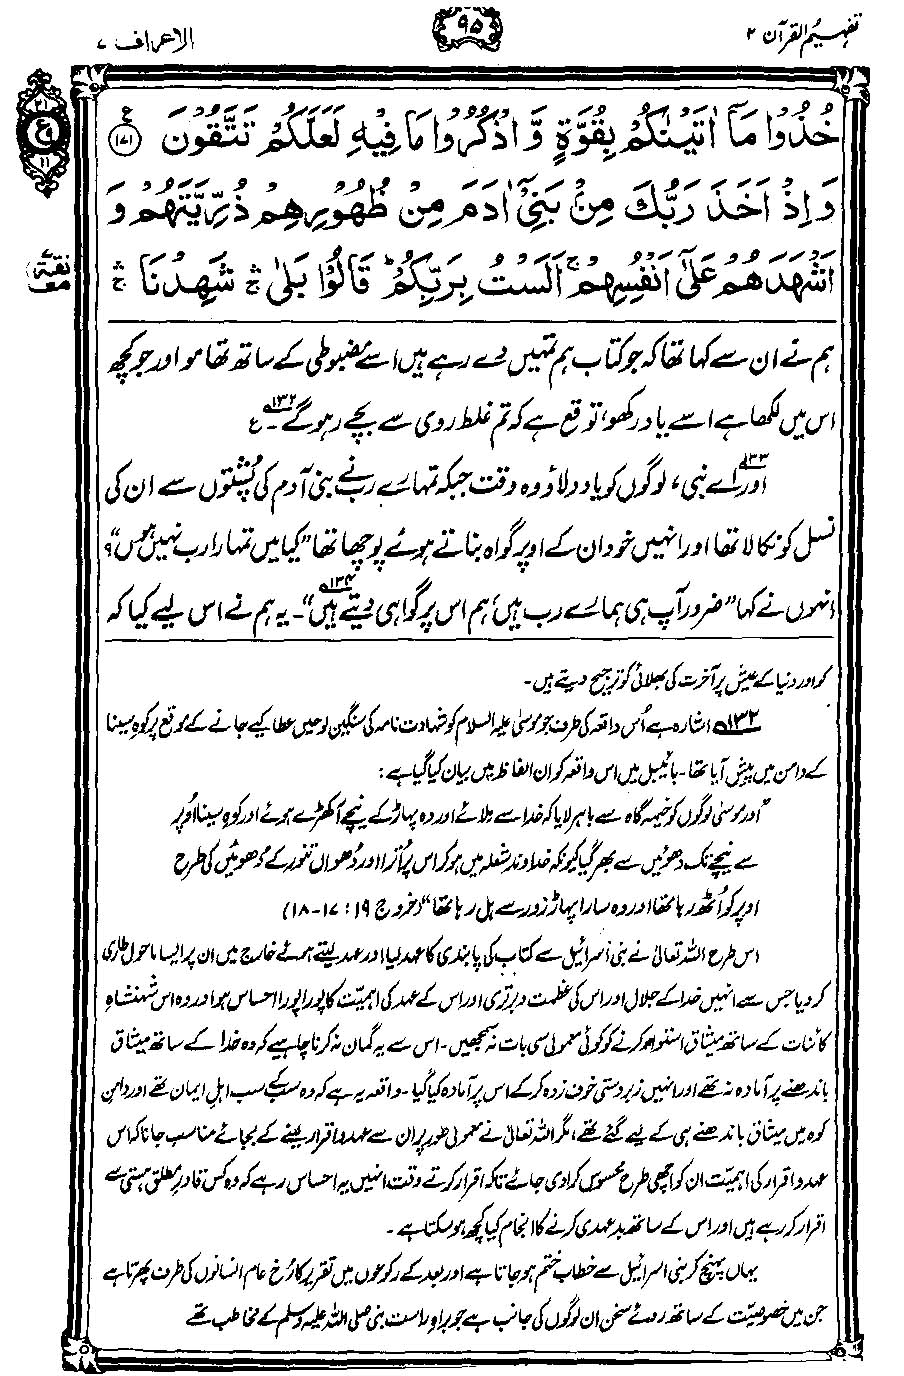 تفہیم القرآن ۲
۹۵
الاعراف ۷
خُذُوْا مَآ اٰتَيْنٰكُمْ بِقُوَّةٍ وَّاذْكُرُوْا مَا فِيْهِ لَعَلَّكُمْ تَتَّقُوْنَ ﴿۱۷۱﴾ ع
وَاِذْ اَخَذَ رَبُّكَ مِنْۢ بَنِيْٓ اٰدَمَ مِنْ ظُهُوْرِهِمْ ذُرِّيَّتَهُمْ وَ
اَشْهَدَهُمْ عَلٰٓى اَنْفُسِهِمْ ۚ اَلَسْتُ بِرَبِّكُمْ ؕ قَالُوْا بَلٰى ۛۚ شَهِدْنَا ۛۚ
۲۱
ع
۱۱
ہم نے ان سے کہا تھا کہ جو کتاب ہم تمہیں دے رہے ہیں اسے مضبوطی کے ساتھ تھامو اور جو کچھ
اس میں لکھا ہے اسے یاد رکھو، توقع ہے کہ تم غلط روی سے بچے رہو گے۔۱۳۲ ع
۱۳۳اور اے نبی، لوگوں کو یاد دلاؤ وہ وقت جبکہ تمہارے رب نے بنی آدم کی پُشتوں سے ان کی
نسل کو نکالا تھا اور انہیں خود ان کے اوپر گواہ بناتے ہوئے پوچھا تھا ”کیا میں تمہارا رب نہیں ہوں“؟
انہوں نے کہا ”ضرور آپ ہی ہمارے رب ہیں، ہم اس پر گواہی دیتے ہیں“۱۳۴۔ یہ ہم نے اس لیے کیا کہ
کو اور دنیا کے عیش پر آخرت کی بھلائی کو ترجیح دیتے ہیں۔
۱۳۲ اشارہ ہے اُس واقعہ کی طرف جو موسیٰ علیہ السلام کو شہادت نامہ کی سنگین لوحیں عطا کیے جانے کے موقع پر کوہِ سینا
کے دامن میں پیش آیا تھا۔ بائیبل میں اس واقعہ کو ان الفاظ میں بیان کیا گیا ہے:
”اور موسیٰ لوگوں کو خیمہ گاہ سے باہر لایا کہ خدا سے ملائے اور وہ پہاڑ کے نیچے آ کھڑے ہوئے اور کوہِ سینا اُوپر
سے نیچے تک دھوئیں سے بھر گیا کیونکہ خداوند شعلہ میں ہو کر اس پر اُترا اور دُھواں تنور کے دُھوئیں کی طرح
اوپر کو اُٹھ رہا تھا اور وہ سارا پہاڑ زور سے ہل رہا تھا“ (خروج ۱۹: ۱۷-۱۸)
اس طرح اللہ تعالیٰ نے بنی اسرائیل سے کتاب کی پابندی کا عہد لیا اور عہد لیتے ہوئے خارج میں ان پر ایسا ماحول طاری
کر دیا جس سے انہیں خدا کے جلال اور اس کی عظمت و برتری اور اس کے عہد کی اہمیت کا پورا پورا احساس ہو اور وہ اس شہنشاہِ
کائنات کے ساتھ میثاق استوار کرنے کو کوئی معمولی سی بات نہ سمجھیں۔ اس سے یہ گمان نہ کرنا چاہیے کہ وہ خدا کے ساتھ میثاق
باندھنے پر آمادہ نہ تھے اور انہیں زبردستی خوف زدہ کر کے اس پر آمادہ کیا گیا۔ واقعہ یہ ہے کہ وہ سب کے سب اہلِ ایمان تھے اور دامنِ
کوہ میں میثاق باندھنے ہی کے لیے گئے تھے، مگر اللہ تعالیٰ نے معمولی طور پر ان سے عہد و اقرار لینے کے بجائے مناسب جانا کہ اس
عہد و اقرار کی اہمیت ان کو اچھی طرح محسوس کرا دی جائے تاکہ اقرار کرتے وقت انہیں یہ احساس رہے کہ وہ کس قادرِ مطلق ہستی سے
اقرار کر رہے ہیں اور اس کے ساتھ بدعہدی کرنے کا انجام کیا کچھ ہو سکتا ہے۔
یہاں پہنچ کر بنی اسرائیل سے خطاب ختم ہو جاتا ہے اور بعد کے رکوعوں میں تقریر کا رُخ عام انسانوں کی طرف پھرتا ہے
جن میں خصوصیت کے ساتھ روئے سخن ان لوگوں کی جانب ہے جو براہِ راست نبی صلی اللہ علیہ وسلم کے مخاطب تھے